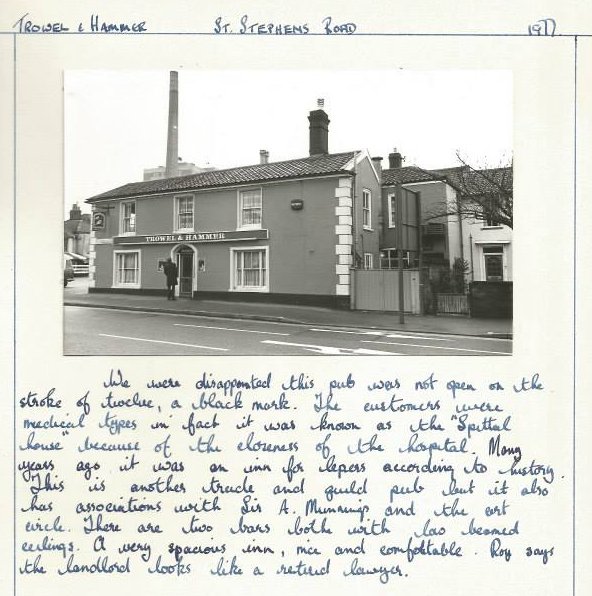 TROWEL & HAMMER ST. STEPHENS ROAD 1977.
TROWEL & HAMMER
We were disappointed this pub was not open on the
stroke of twelve, a black mark. The customers were
medical types in fact it was known as the "Spittal
house" because of the closeness of the hospital. Many
years ago it was an inn for lepers according to history.
This is another trade and guild pub but it also
has associations with Sir A. Munnings and the art
circle. There are two bars both with low beamed
ceilings. A very spacious inn, nice and comfortable. Roy says
the landlord looks like a retired lawyer.